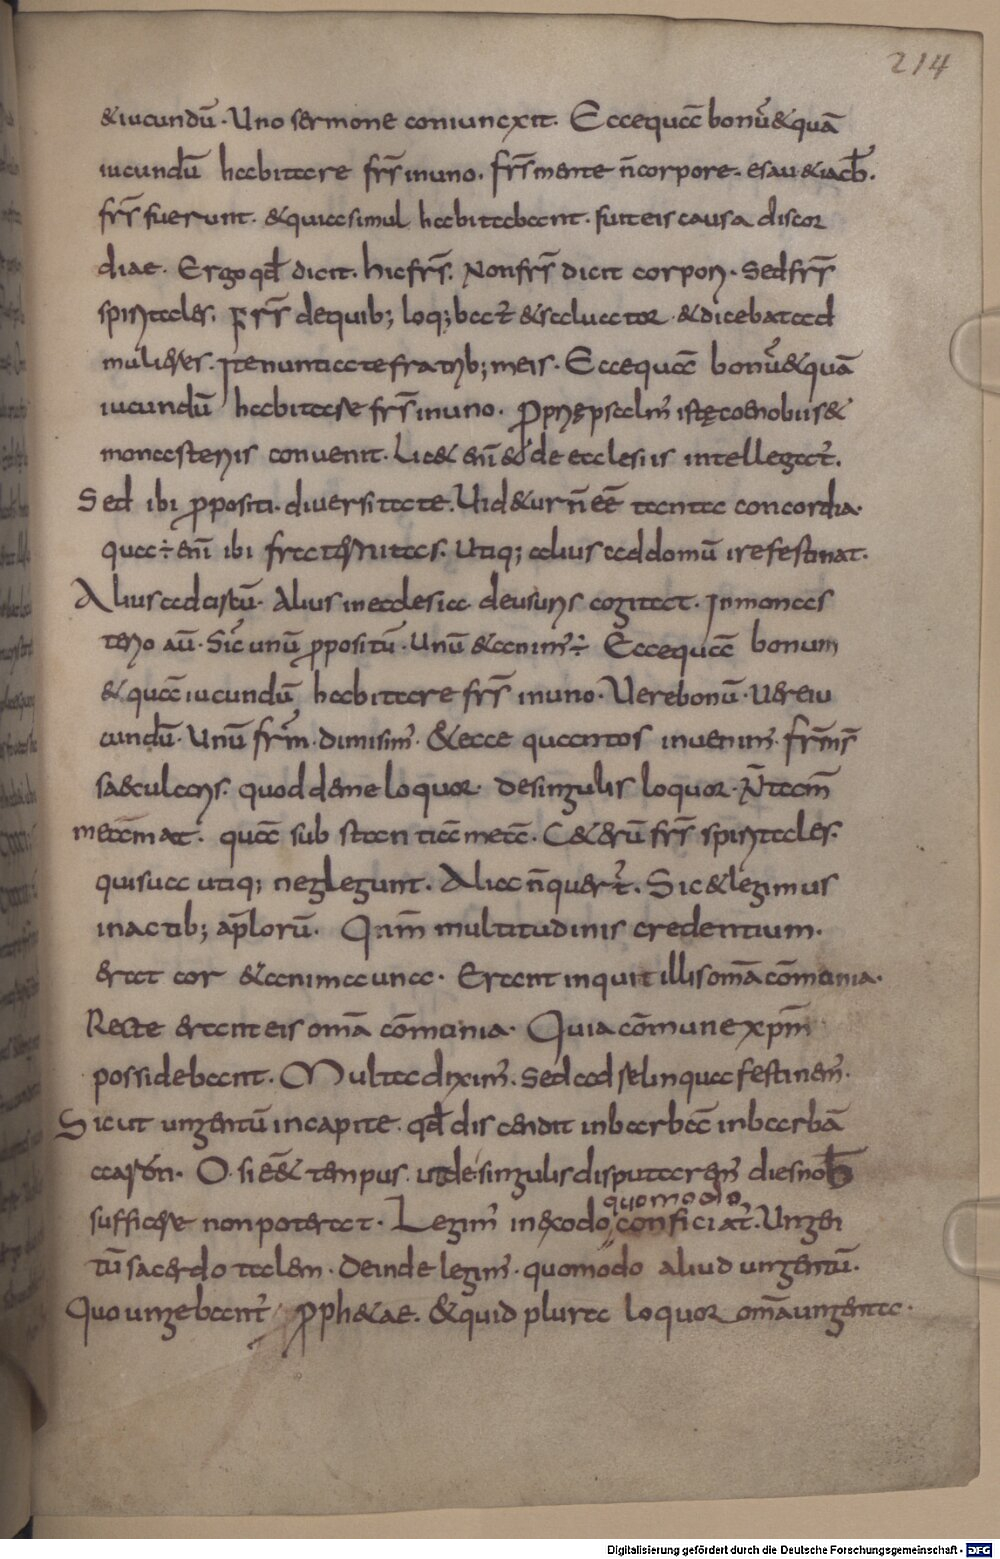 214
&iucundū · Uno sermone coniuncxit · Eccequā bonū&quā
iucundū habitare fr̄s inuno · fr̄s mente n̄corpore · esau &iacob̄ ·
fr̄s fuerunt · &quia simul habitabant · fuiteis causa discor
diae · Ergo qđ dicit · hicfr̄s · Nonfr̄s dicit corpori · Sedfr̄s
spiritales · Fr̄s dequib; loq;bat̄ &saluator · &dicebatad
mulieres · Itenuntiatefratrib;meis · Eccequā bonū&quā
iucundū habitare fr̄s inuno · P̄prię psalm̄ istę coenobiis&
monasteriis conuenit · Lic& eni&de ecclesiis intellegat̄ ·
Sed ibi p̄positi · diuersitate · Uid&ur n̄ eē tanta concordia ·
quae ÷ eni ibi fraternitas · Utiq; alius addomū irefestinat ·
Alius adcistū · Alius inecclesia deusuris cogitat · Inmonas
terio aū · Sic̄ unū p̄positū · Unū &anim̄ ÷ Eccequā bonum
&quā iucundū habitare fr̄s inuno · Uerebonū · Uereiu
cundū · Unū fr̄m · dimisim̄ · &ecce quantos inuenim̄ · fr̄ms̄
saecularis · quod deme loquor · desingulis loquor · N̄tam̄
meāmat · quā sub stantiā meā · C&erū fr̄s spiritales ·
quisua utiq; neglegunt · Alia n̄quer̄t · Sic &legimus
inactib; ap̄lorū · Qnm̄ multitudinis credentium ·
erat cor &anima una · Erant inquit illisomā cōmunia ·
Recte eranteis omā cōmunia · Quia cōmune xp̄m
possidebant · Multa diximꝰ · Sed ad reliqua festinem̄ ·
Sicut ungentū incapite · qđ discendit inbarbā inbarbā
aaron · O · si eē& tempus · utde singulis disputarem̄ diesnob̄
sufficere nonpoterat · Legim̄ inexodo quomodo conficiat̄ · Ungen
tū sacerdotalem · Deinde legim̄ · quomodo aliud ungentū ·
Quo ungebant̄ p̄ph&ae · &quid plura loquor omā ungenta ·
Digitalisierung gefördert durch die Deutsche Forschungsgemeinschaft - DFG